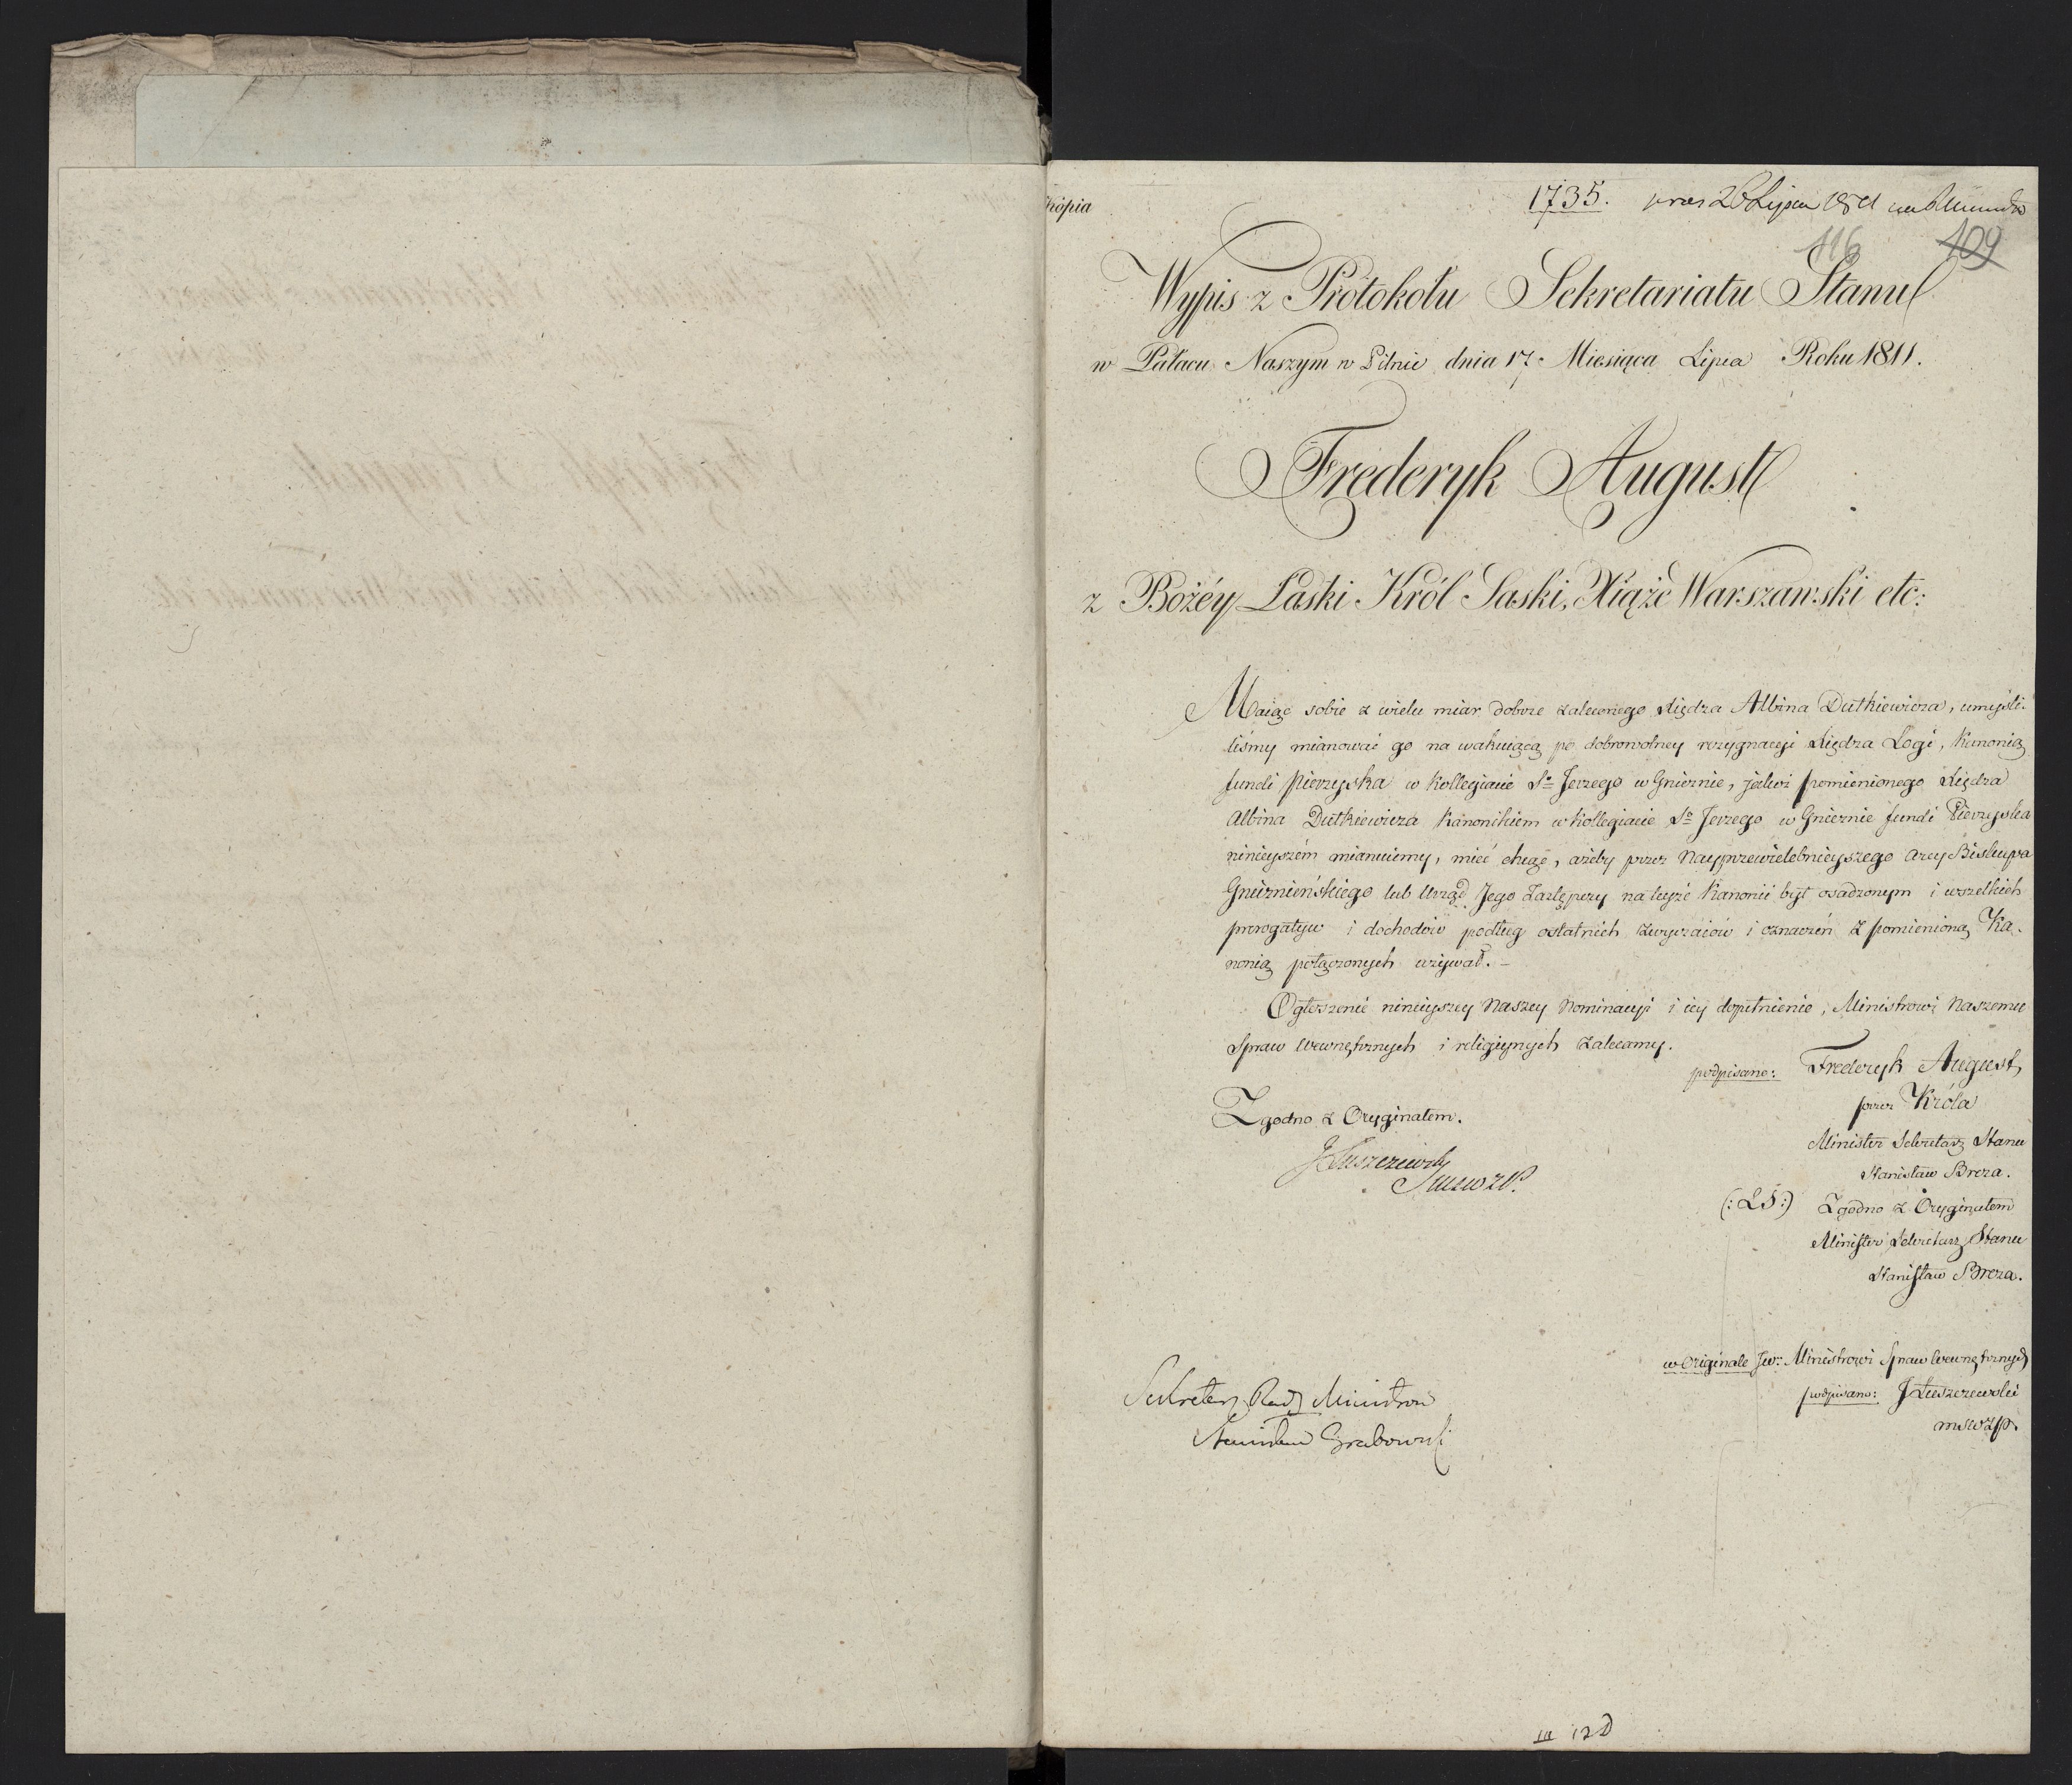 Kópia
1735. pres 26 Lipca 1811
116 109
Wypis z Protokołu Sekretariatu Stanu
w Pałacu Naszym w Pilnic dnia 17. Miesiąca Lipca Roku 1811.
Frederyk August
z Bożéy Łaski Król Saski, Xiąże Warszawski etc:
Maiąc sobie z wielu miar dobrze zaleconego Xiędza Albina Dutkiewicza, umyśli-
liśmy mianować go na wakuiącą po dobrowolney rezygnacyi Xiędza Logi, Kanonią
fundi Pierzyska w Kollegiacie Sº Jerzego w Gnieznie, jakoż pomienionego Xiędza
Albina Dutkiewicza Kanonikiem w Kollegiacie Sº Jerzego w Gnieznie fundi Pierzyska
ninieyszém mianuiemy, mieć chcąc, ażeby przez Nayprzewielebnieyszego Arcy Biskupa
Gnieznieńskiego lub Urząd Jego Zastępczy na teyże Kanonii był osadzonym i wszelkich
prerogatyw i dochodów podług ostatnich zwyczaiów i oznaczeń z pomienioną Ka-
nonią połączonych używał. –
Ogłoszenie ninieyszey Naszey Nominacyi i iey dopełnienie, Ministrowi Naszemu
Spraw Wewnętrznych i religiynych zalecamy.
podpisano: Frederyk August,
przez Króla
Minister Sekretarz Stanu
Stanisław Breza.
(: LS :) Zgodno z Oryginałem
Minister Sekretarz Stanu
Stanisław Breza.
Zgodno z Oryginałem.
JŁuszczewski
w Originale Jw: Ministrowi Spraw Wewnętrznych
podpisano: JŁuszczewski
mswzp.
Sekretarz Rady Ministrow
Stanisław Grabowski
III 12 D